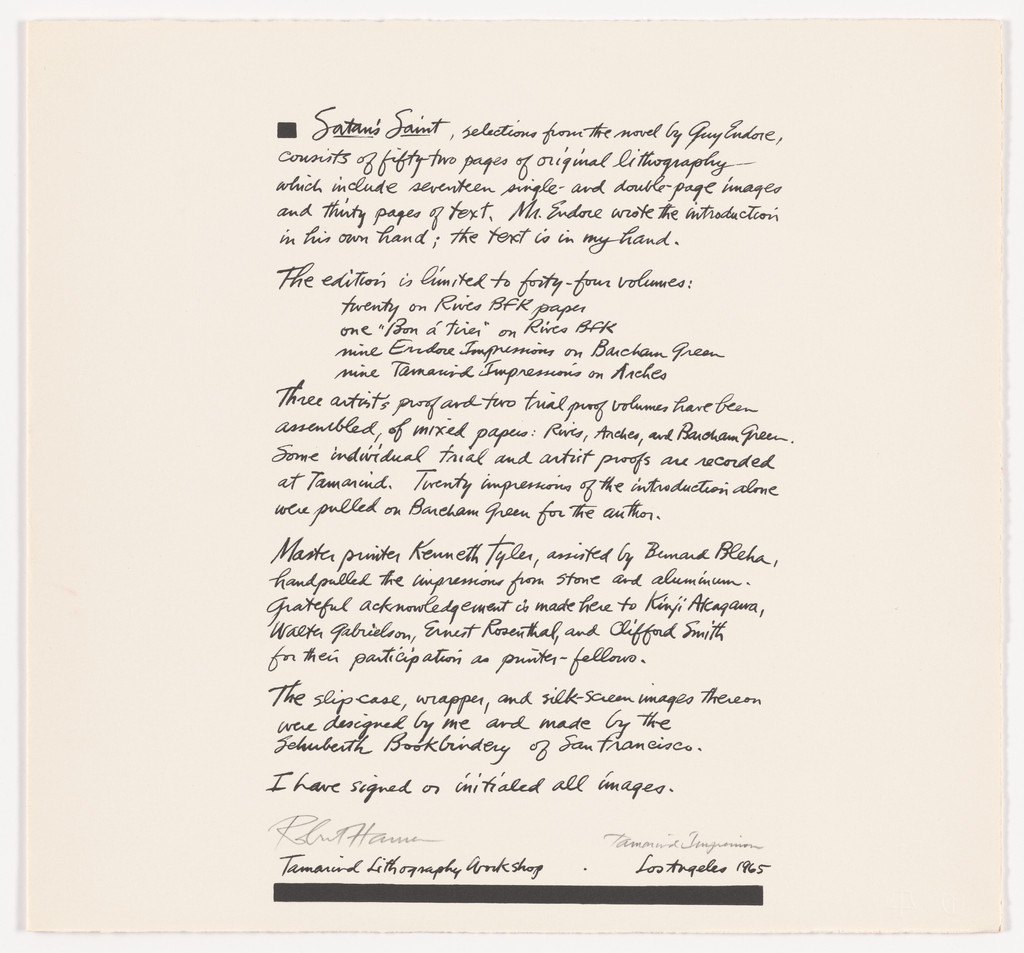 Satan's Saint, selections from the novel by Guy Endore,
consists of fifty-two pages of original lithography—
which include seventeen single- and double-page images
and thirty pages of text. Mr. Endore wrote the introduction
in his own hand; the text is in my hand.
The edition is limited to forty-four volumes:
twenty on Rives BFK paper
one "Bon á tirer" on Rives BFK
nine Endore Impressions on Barcham Green
nine Tamarind Impressions on Arches
Three artist's proof and two trial proof volumes have been
assembled, of mixed papers: Rives, Arches, and Barcham Green.
Some individual trial and artist proofs are recorded
at Tamarind. Twenty impressions of the introduction alone
were pulled on Barcham Green for the author.
Master printer Kenneth Tyler, assisted by Bernard Bleha,
handpulled the impressions from stone and aluminum.
Grateful acknowledgement is made here to Kinji Akagawa,
Walter Gabrielson, Ernest Rosenthal, and Clifford Smith
for their participation as printer-fellows.
The slip-case, wrapper, and silk-screen images thereon
were designed by me and made by the
Schuberth Bookbindery of San Francisco.
I have signed or initialed all images.
Robert Hansen Tamarind Impression
Tamarind Lithography Workshop . Los Angeles 1965